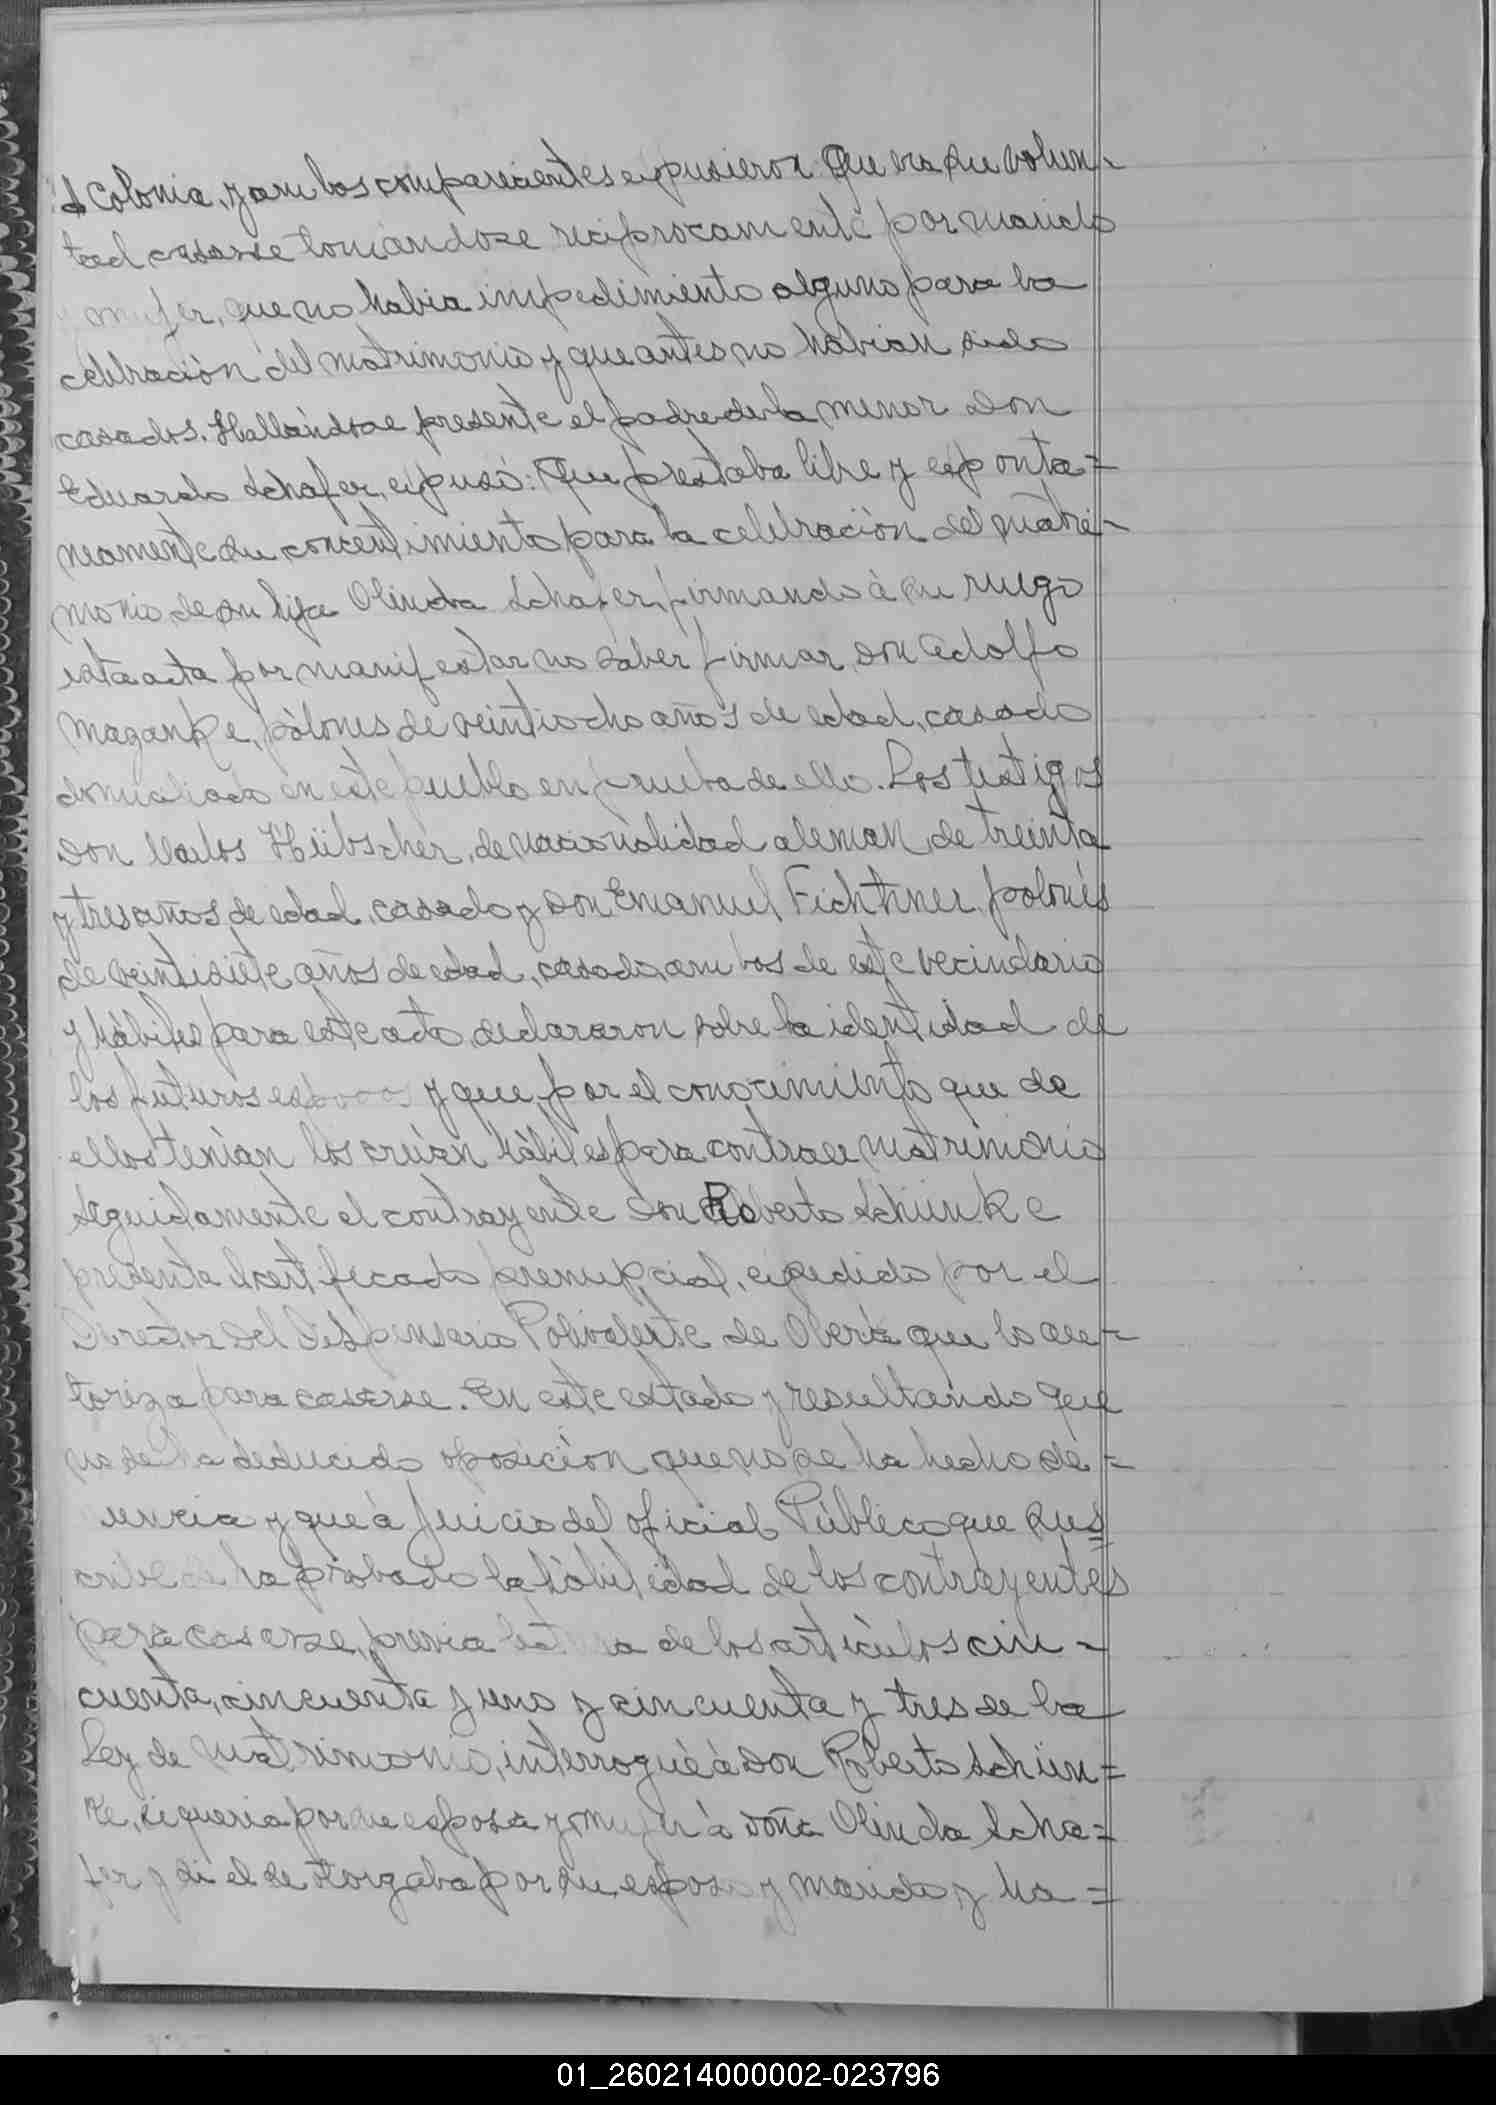 Colonia, y ambos comparecientes expusieron: Que era su volun-
tad casarse tomándose reciprocamente por marido
y mujer, que no habia impedimento alguno para la
celebración del matrimonio y que antes no habian sido
casados. Hallándose presente el padre de la menor Don
Eduardo Schafer, expuso: Que prestaba libre y esponta=
neamente su concentimiento para la celebración del matri-
monio de su hija Olinda Schafer, firmando à su ruego
esta acta por manifestar no saber firmar, Don Adolfo
Maganke, pólones de veintiocho años de edad, casado
domiciliado en este pueblo en prueba de ello. Los testigos
Don Carlos Hübscher, de nacionalidad aleman, de treinta
y tres años de edad, casado y Don Emanuel Fichtner, polonés
de veintisiete años de edad, casado, ambos de este vecindario
y hábiles para este acto, declararon sobre la identidad de
los futuros esposos y que por el conocimiento que de
ellos tenian los creían hábiles para contraer matrimonio
Seguidamente el contrayente Don Roberto Schünke
presenta el certificado prenupcial, expedido por el
Director del Dispensario Polivalente de Oberá que lo au-
toriza para casarse. En este estado y resultando que
no se ha deducido oposición que no se ha hecho de=
uncia y que à juicio del oficial Público que sus
cribe se ha probado la habilidad de los contrayentes
para casarse, previa de los artículos cin-
cuenta, cincuenta y uno y cincuenta y tres de la
Ley de Matrimonio, interrogué à Don Roberto Schün=
ke, si queria por su esposa y mujer à doña Olinda Scha=
fer y si el se otorgaba por su esposo y marido, y ha=
01_260214000002-023796